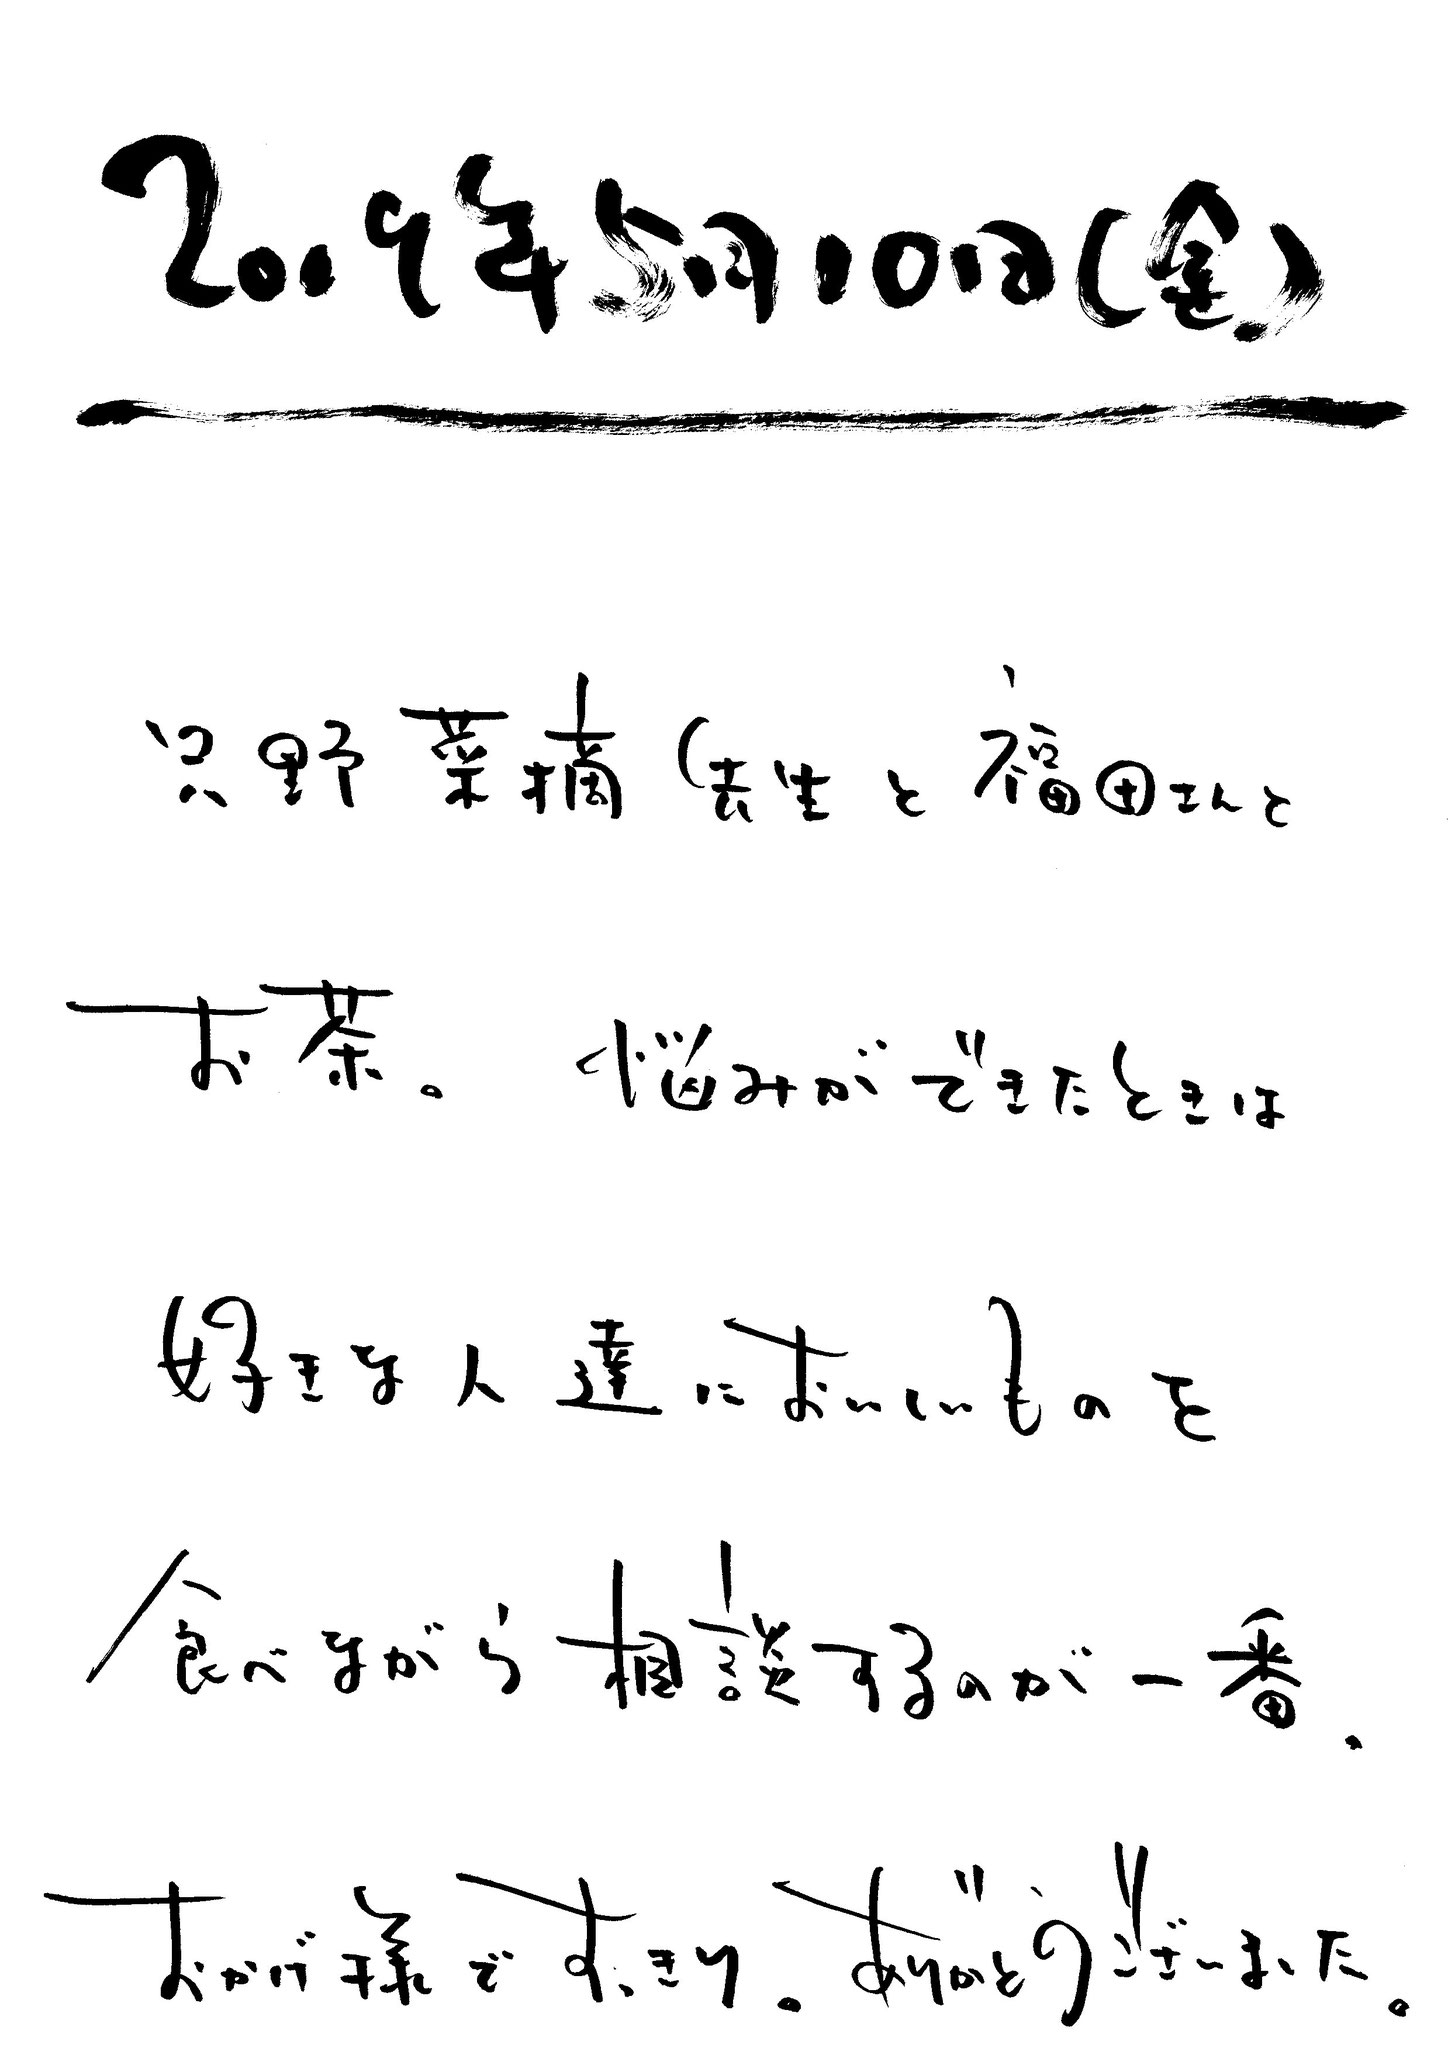 2019年5月10日(金)
只野菜摘先生と福田さんと
お茶。 悩みができたときは
好きな人達においしいものを
食べながら相談するのが一番.
おかげ様ですっきり。ありがとうございました。